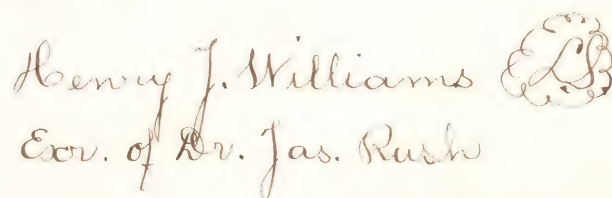 Henry J. Williams LS
Exr. of Dr. Jas. Rush